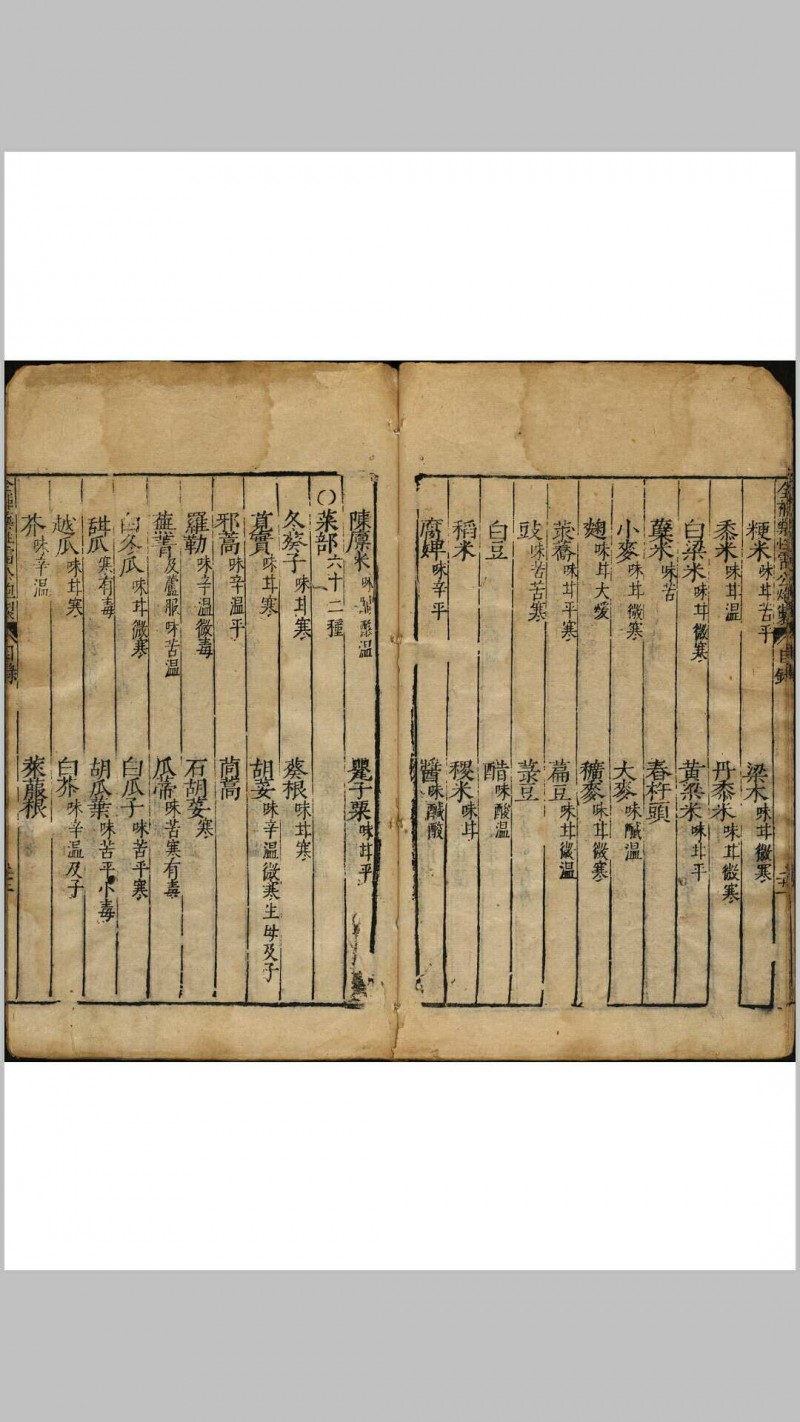 粳米味甘苦平 粱木味甘微寒
黍米味甘温 丹黍米味甘微寒
白梁米味甘微寒 黄粱米味甘平
蘖米味苦 春杵頭
小麥味甘微寒 大麥味醎温
麹味甘大煖 穬麥味甘微寒
蕎味甘平寒 藊豆味甘微温
豉味苦苦寒 菉豆
白豆 醋味酸温
稻米 稷米味甘
腐婢味辛平 醬味醎酸
陳廪米味醎酸温 甖子粟味甘平
○菜部六十二種
冬葵子味甘寒 葵根味甘寒
莧實味甘寒 胡荽味辛温微寒生毋及子
邪蒿味辛温平 茼蒿
羅勒味辛温微毒 石胡荽寒
蕪菁及蘆服味苦温 瓜蒂味苦寒有毒
白冬瓜味甘微寒 白瓜子味甘平寒
甜瓜寒有毒 胡瓜葉味苦平小毒
越瓜味甘寒 白芥味辛温及子
芥味辛温 萊菔根